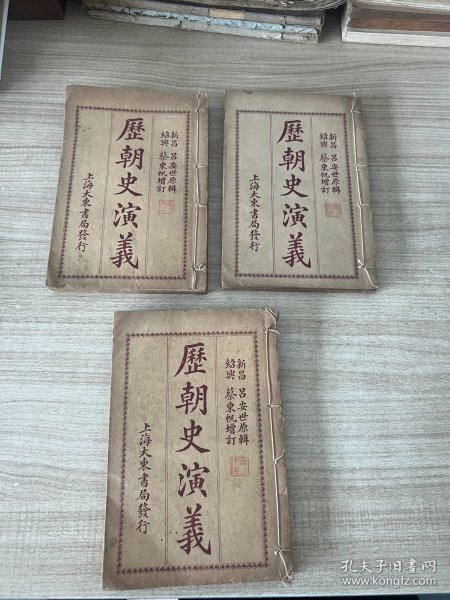 新昌 呂安世原輯
紹興 蔡東帆增訂
歷朝史演義
上海大東書局發行
新昌 呂安世原輯
紹興 蔡東帆增訂
歷朝史演義
上海大東書局發行
新昌 呂安世原輯
紹興 蔡東帆增訂
歷朝史演義
上海大東書局發行
孔夫子旧书网
www.kongfz.com